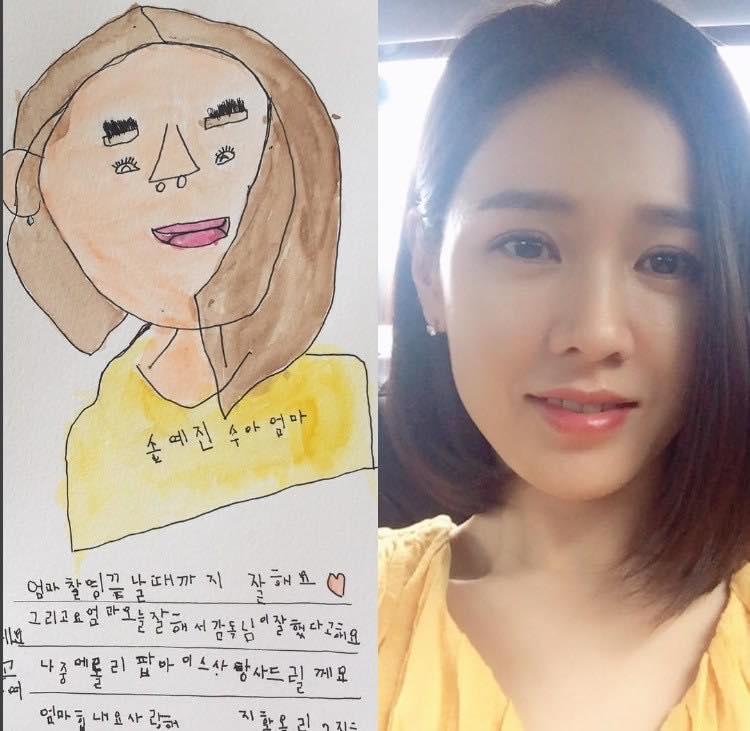 손예진 수아 엄마
엄마 촬영 끝날때까지 잘해요
그리고요 엄마 오늘 잘해서 감독님이 잘했다고해요
나중에 롤리팝 아이스 사드릴께요
엄마 힘내요 사랑해